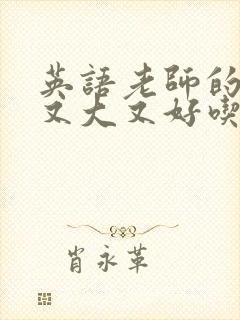 英語老師的
又大又好喫
肖永革